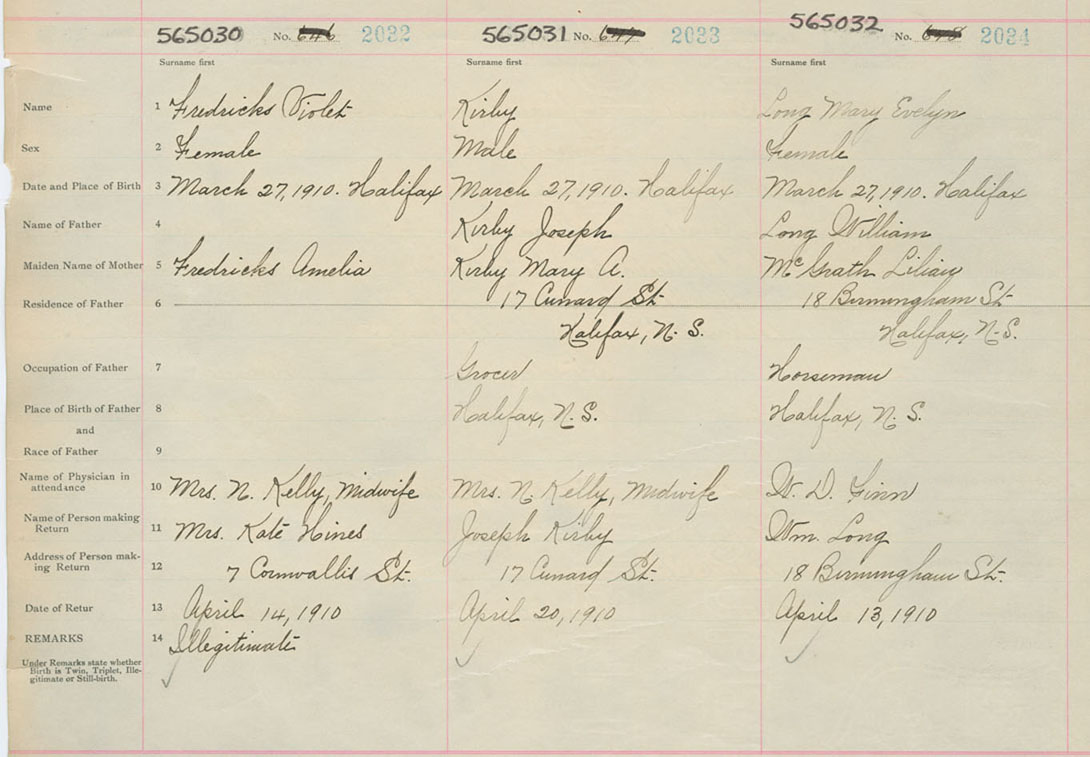 565030 No. 646 2032 565031 No. 647 2033 565032 No. 648 2034
Surname first Surname first Surname first
Name 1 Fredricks Violet Kirby Long Mary Evelyn
Sex 2 Female Male Female
Date and Place of Birth 3 March 27, 1910. Halifax March 27, 1910. Halifax March 27, 1910. Halifax
Name of Father 4 Kirby Joseph Long William
Maiden Name of Mother 5 Fredricks Amelia Kirby Mary A. McGrath Lilian
Residence of Father 6 17 Cunard St. 18 Birmingham St.
Halifax, N. S. Halifax, N. S.
Occupation of Father 7 Grocer Horseman
Place of Birth of Father 8 Halifax, N. S. Halifax, N. S.
and
Race of Father 9
Name of Physician in
attendance 10 Mrs. N. Kelly, Midwife Mrs. N. Kelly, Midwife W. D. Finn
Name of Person making
Return 11 Mrs. Kate Hines Joseph Kirby Wm. Long
Address of Person mak-
ing Return 12 7 Cornwallis St. 17 Cunard St. 18 Birmingham St.
Date of Retur 13 April 14, 1910 April 20, 1910 April 13, 1910
REMARKS 14 Illegitimate
Under Remarks state whether
Birth is Twin, Triplet, Ille-
gitimate or Still-birth.